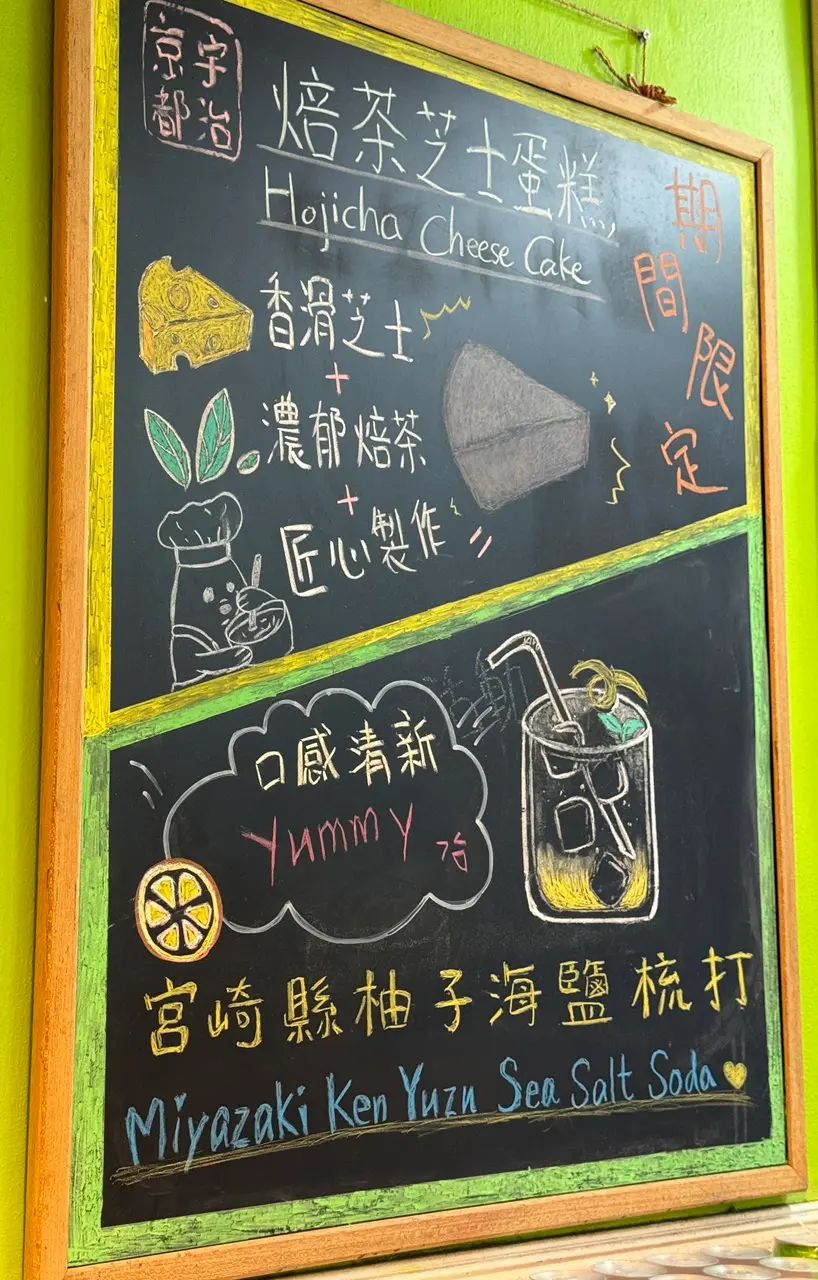 京都
宇治
焙茶芝士蛋糕
Hojicha Cheese Cake
期間限定
香滑芝士
+
濃郁焙茶
+
匠心製作
口感清新
Yummy
宮崎縣柚子海鹽梳打
Miyazaki Ken Yuzu Sea Salt Soda